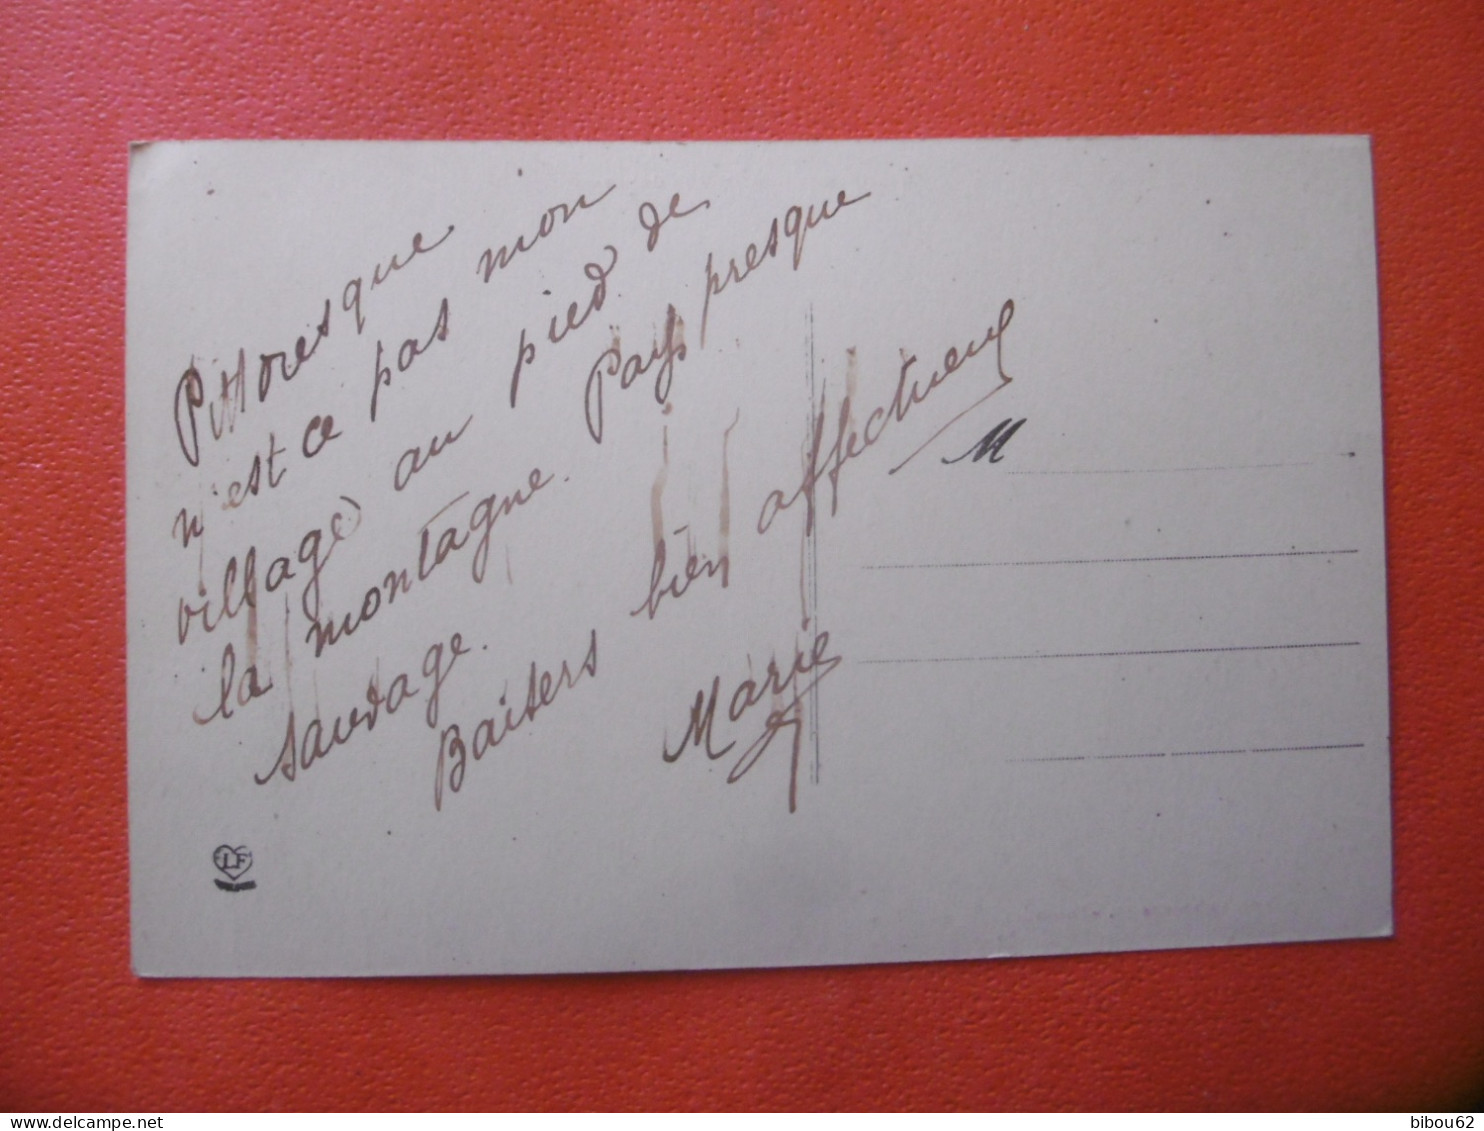 Pittoresque
n'est ce pas mon
village au pied de
la montagne. Pays presque
sauvage.
Baisers bien affectueux
Marie
M
LF
bibou62